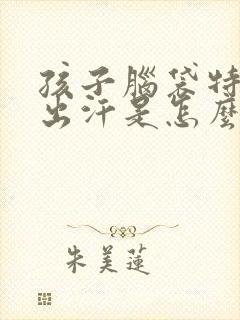 孩子腦袋特
出汗是怎麼
朱美蓮